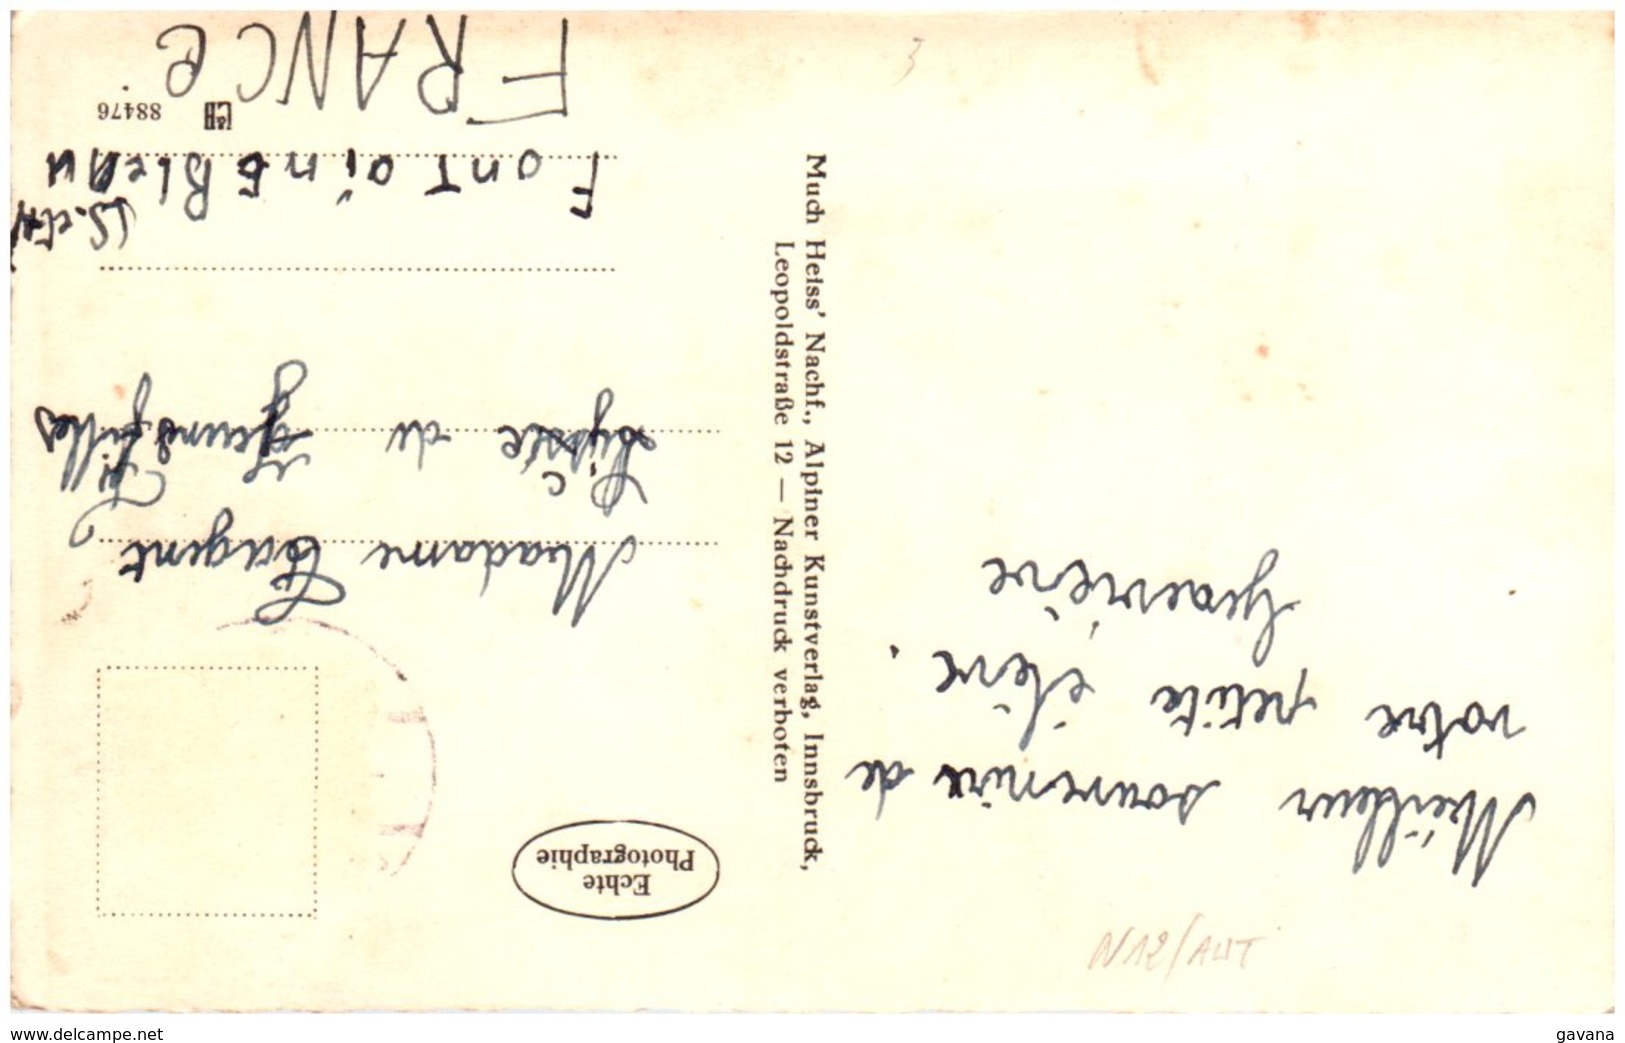 N12/AUT
Meilleur souvenire de
votre petite élève.
Echte
Photographie
Much Heiss' Nachf., Alpiner Kunstverlag, Innsbruck,
Leopoldstraße 12 — Nachdruck verboten
Madame
Lycée de Jeunes Filles
FontainEBleau
(S.et
FRANCe
88476
3
www.delcampe.net
gavana